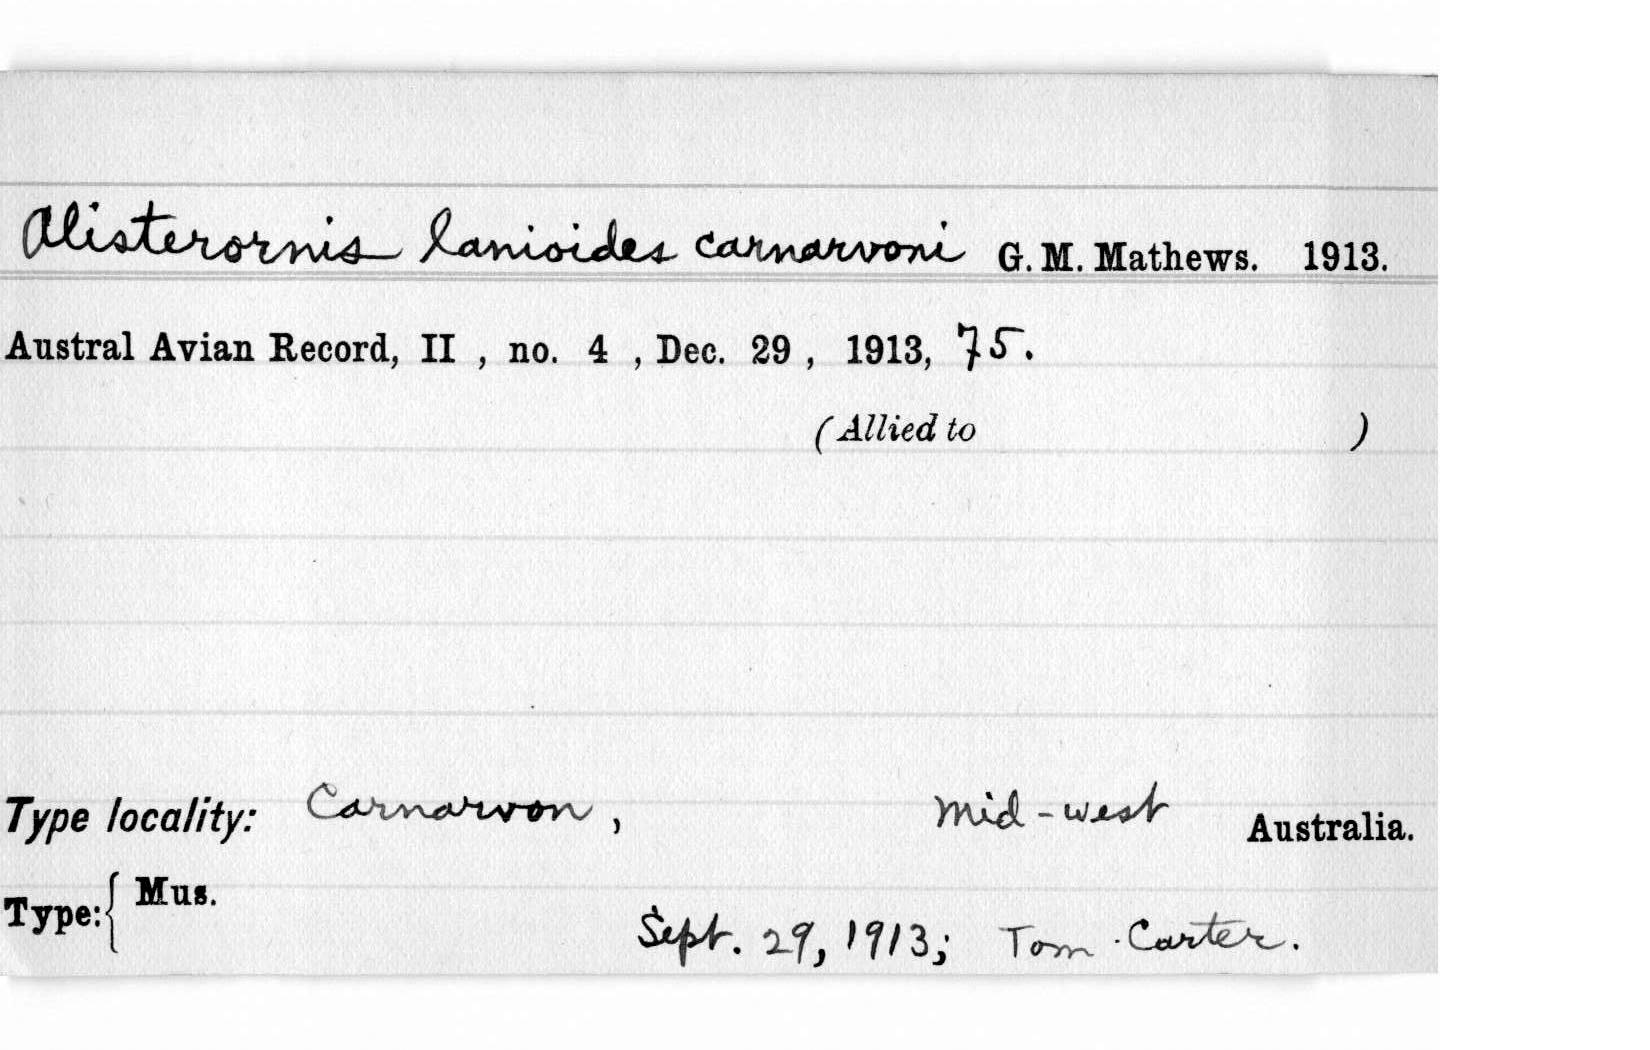 Alisterornis lanioides carnarvoni G. M. Mathews. 1913.
Austral Avian Record, II , no. 4 , Dec. 29 , 1913, 75.
(Allied to )
Type locality: Carnarvon , mid-west Australia.
Type: { Mus.
Sept. 29, 1913; Tom Carter.